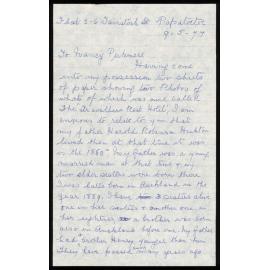 Flat 3-6 Tavistock St. Papatoetoe
9-5-77
To Nancy
Having come
into my possession two sheets
of paper showing two Photos of
what which was once called
The Rest Hotel, I am
anxious to relate to you that
my father Harold Robinson
lived there at that time it was
in the 1880s my father was a young
married man at that time & my
two elder sisters were born there
I was born in Auckland in the
year 1889. I have 3 sisters alive
one in her & another one in
her eighties a brother was born
also in Auckland before me. my father
had a brother Henry younger than him
They have passed many years ago